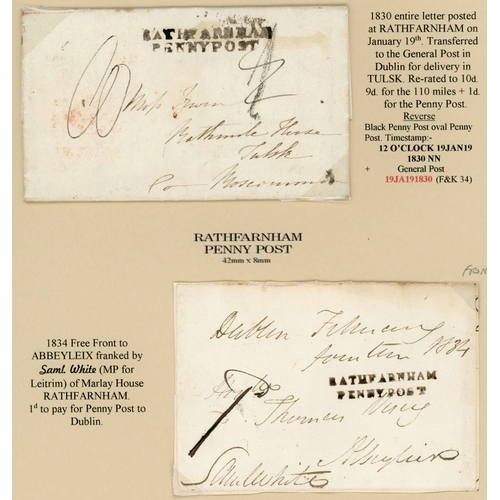 1830 entire letter posted
at RATHFARNHAM on
January 19th. Transferred
to the General Post in
Dublin for delivery in
TULSK. Re-rated to 10d.
9d. for the 110 miles + 1d.
for the Penny Post.
Reverse
Black Penny Post oval Penny
Post. Timestamp:-
12 O'CLOCK 19JAN19
1830 NN
+ General Post
19JA191830 (F&K 34)
RATHFARNHAM
PENNYPOST
Miss Irwin
House
Tulsk
Co Roscommon
RATHFARNHAM
PENNY POST
42mm x 8mm
1834 Free Front to
ABBEYLEIX franked by
Saml. White (MP for
Leitrim) of Marlay House
RATHFARNHAM.
1d to pay for Penny Post to
Dublin.
Dublin February
fourteen 1834
RATHFARNHAM
PENNYPOST
Thomas
Abbeyleix
Saml White